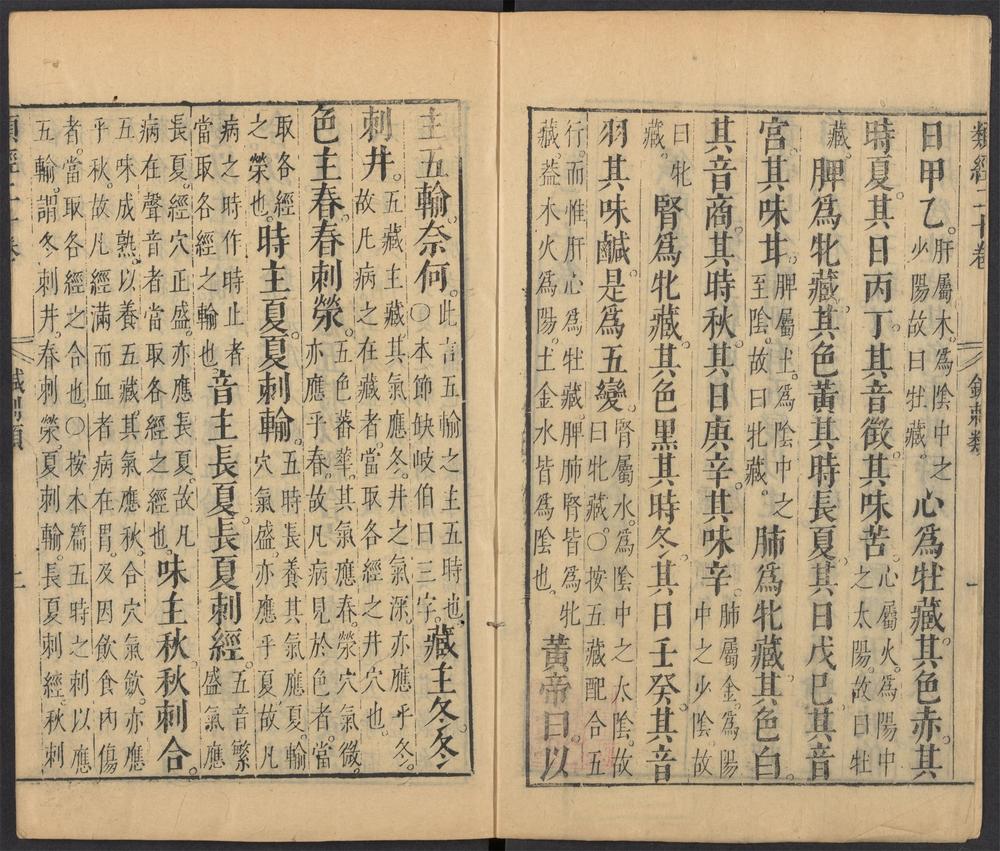 類經二十卷 鍼刺類 一
日甲乙。肝屬木。爲陰中之少陽。故曰牡藏。心爲牡藏。其色赤。其
時夏。其日丙丁。其音徵。其味苦。心屬火。爲陽中之太陽。故曰牡
藏。脾爲牝藏。其色黃。其時長夏。其日戊己。其音
宮。其味甘。脾屬土。爲陰中之至陰。故曰牝藏。肺爲牝藏。其色白。
其音商。其時秋。其日庚辛。其味辛。肺屬金。爲陽中之少陰。故
曰牝藏。腎爲牝藏。其色黑。其時冬。其日壬癸。其音
羽。其味鹹。是爲五變。腎屬水。爲陰中之太陰。故曰牝藏。○按五藏配合五
行。而惟肝心爲牡藏。脾肺腎皆爲牝藏。蓋木火爲陽。土金水皆爲陰也。黃帝曰。以
主五輸奈何。此言五輸之主五時也。○本節缺岐伯曰三字。藏主冬。冬
刺井。五藏主藏。其氣應冬。井之氣深。亦應乎冬。故凡病之在藏者。當取各經之井穴也。
色主春。春刺滎。五色蕃華。其氣應春。滎穴氣微。亦應乎春。故凡病見於色者。當
取各經之滎也。時主夏。夏刺輸。五時長養。其氣應夏。輸穴氣盛。亦應乎夏。故凡
病之時作時止者。當取各經之輸也。音主長夏。長夏刺經。五音繁盛。氣應
長夏。經穴正盛。亦應長夏。故凡病在聲音者。當取各經之經也。味主秋。秋刺合。
五味成熟。以養五藏。其氣應秋。合穴氣斂。亦應乎秋。故凡經滿而血者。病在胃。及因飲食內傷
者。當取各經之合也。○按本篇五時之刺以應五輸。謂冬刺井。春刺滎。夏刺輸。長夏刺經。秋刺